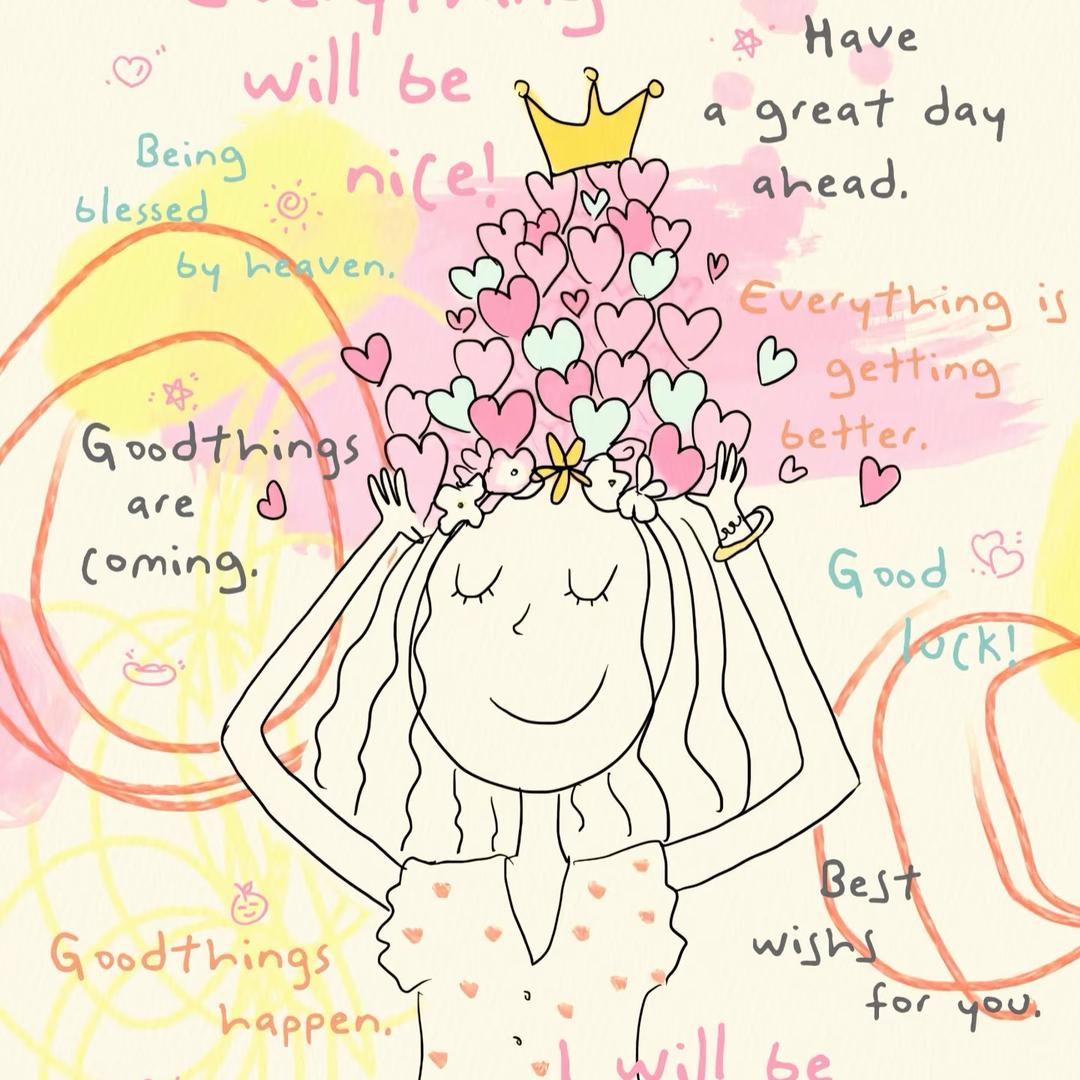 Everything
will be
nice!
Have
a great day
ahead.
Being
blessed
by heaven.
Everything is
getting
better.
Goodthings
are
coming.
Good
luck!
Best
wishs
for you.
Goodthings
happen.
I will be